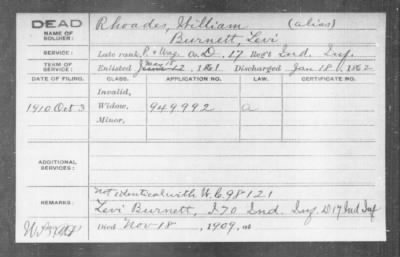 DEAD
NAME OF SOLDIER:
Rhoades, William (alias)
Burnett, Levi
SERVICE:
Late rank, P. & Wag. Co. D, 17 Reg't Ind. Inf.
TERM OF SERVICE:
Enlisted June 12, 1861 Discharged Jan 18, 1862
DATE OF FILING. CLASS. APPLICATION NO. LAW. CERTIFICATE NO.
Invalid,
1910 Oct 3 Widow, 949.992 a
Minor,
ADDITIONAL SERVICES:
REMARKS:
Not identical with W.C. 98121
Levi Burnett, I 70 Ind. Inf. D 17 Ind Inf
Died Nov 18, 1909, at